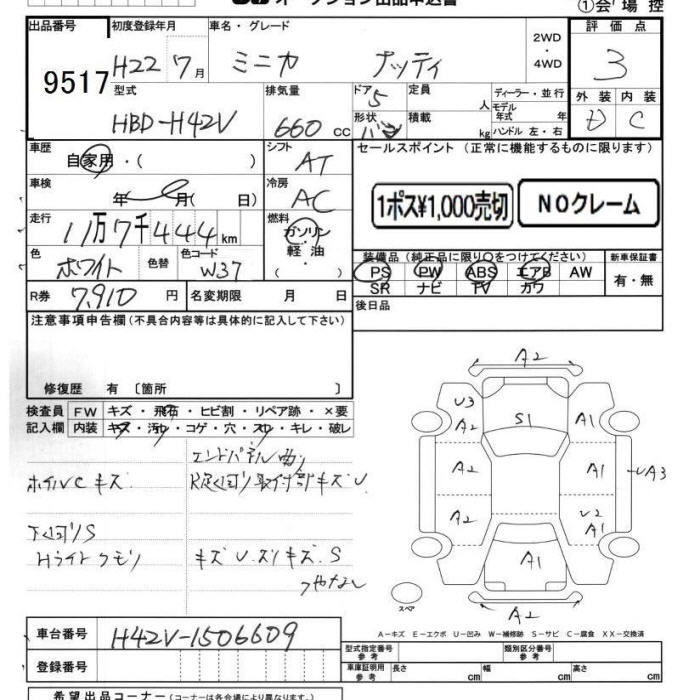 オークション出品申込書
①会場控
出品番号 初度登録年月 車名・グレード 2WD・4WD 評価点
9517 H22 7月 ミニカ ナッティ 3
型式 排気量 ドア 5 定員 人 ディーラー・並行 外装 内装
HBD-H42V 660cc 形状 バン 積載 kg モデル年式 年式 ハンドル 左・右 D C
車歴 自家用・( ) シフト AT セールスポイント(正常に機能するものに限ります)
車検 年 月( 日) 冷房 AC 1ポス¥1,000売切 NOクレーム
走行 11万7千444km 燃料 ガソリン・軽油
色 ホワイト 色替 色コード W37 装備品(純正品に限り○をつけてください) 新車保証書
PS PW ABS エアB AW 有・無
SR ナビ TV カワ
R券 7,910円 名変期限 月 日 後日品
注意事項申告欄(不具合内容等は具体的に記入して下さい)
修復歴 有〔箇所 〕
検査員 FW キズ・飛石・ヒビ割・リペア跡・×要
記入欄 内装 キズ・汚レ・コゲ・穴・スレ・キレ・破レ
エンドパネル曲
ホイルC キズ
下回リS
Hライトクモリ
キズ U.スリキズ.S
つやなし
A2
U3 A2 S1 A1
A2 A1 UA3
A2 U2 A1
A1
A2
スペア
A-キズ E-エクボ U-凹み W-補修跡 S-サビ C-腐食 XX-交換済
車台番号 H42V-1506609
型式指定番号 参考 類別区分番号 参考
登録番号
車庫証明用 参考 長さ cm 幅 cm 高さ cm
希望出品コーナー(コーナーは各会場により異なります。)